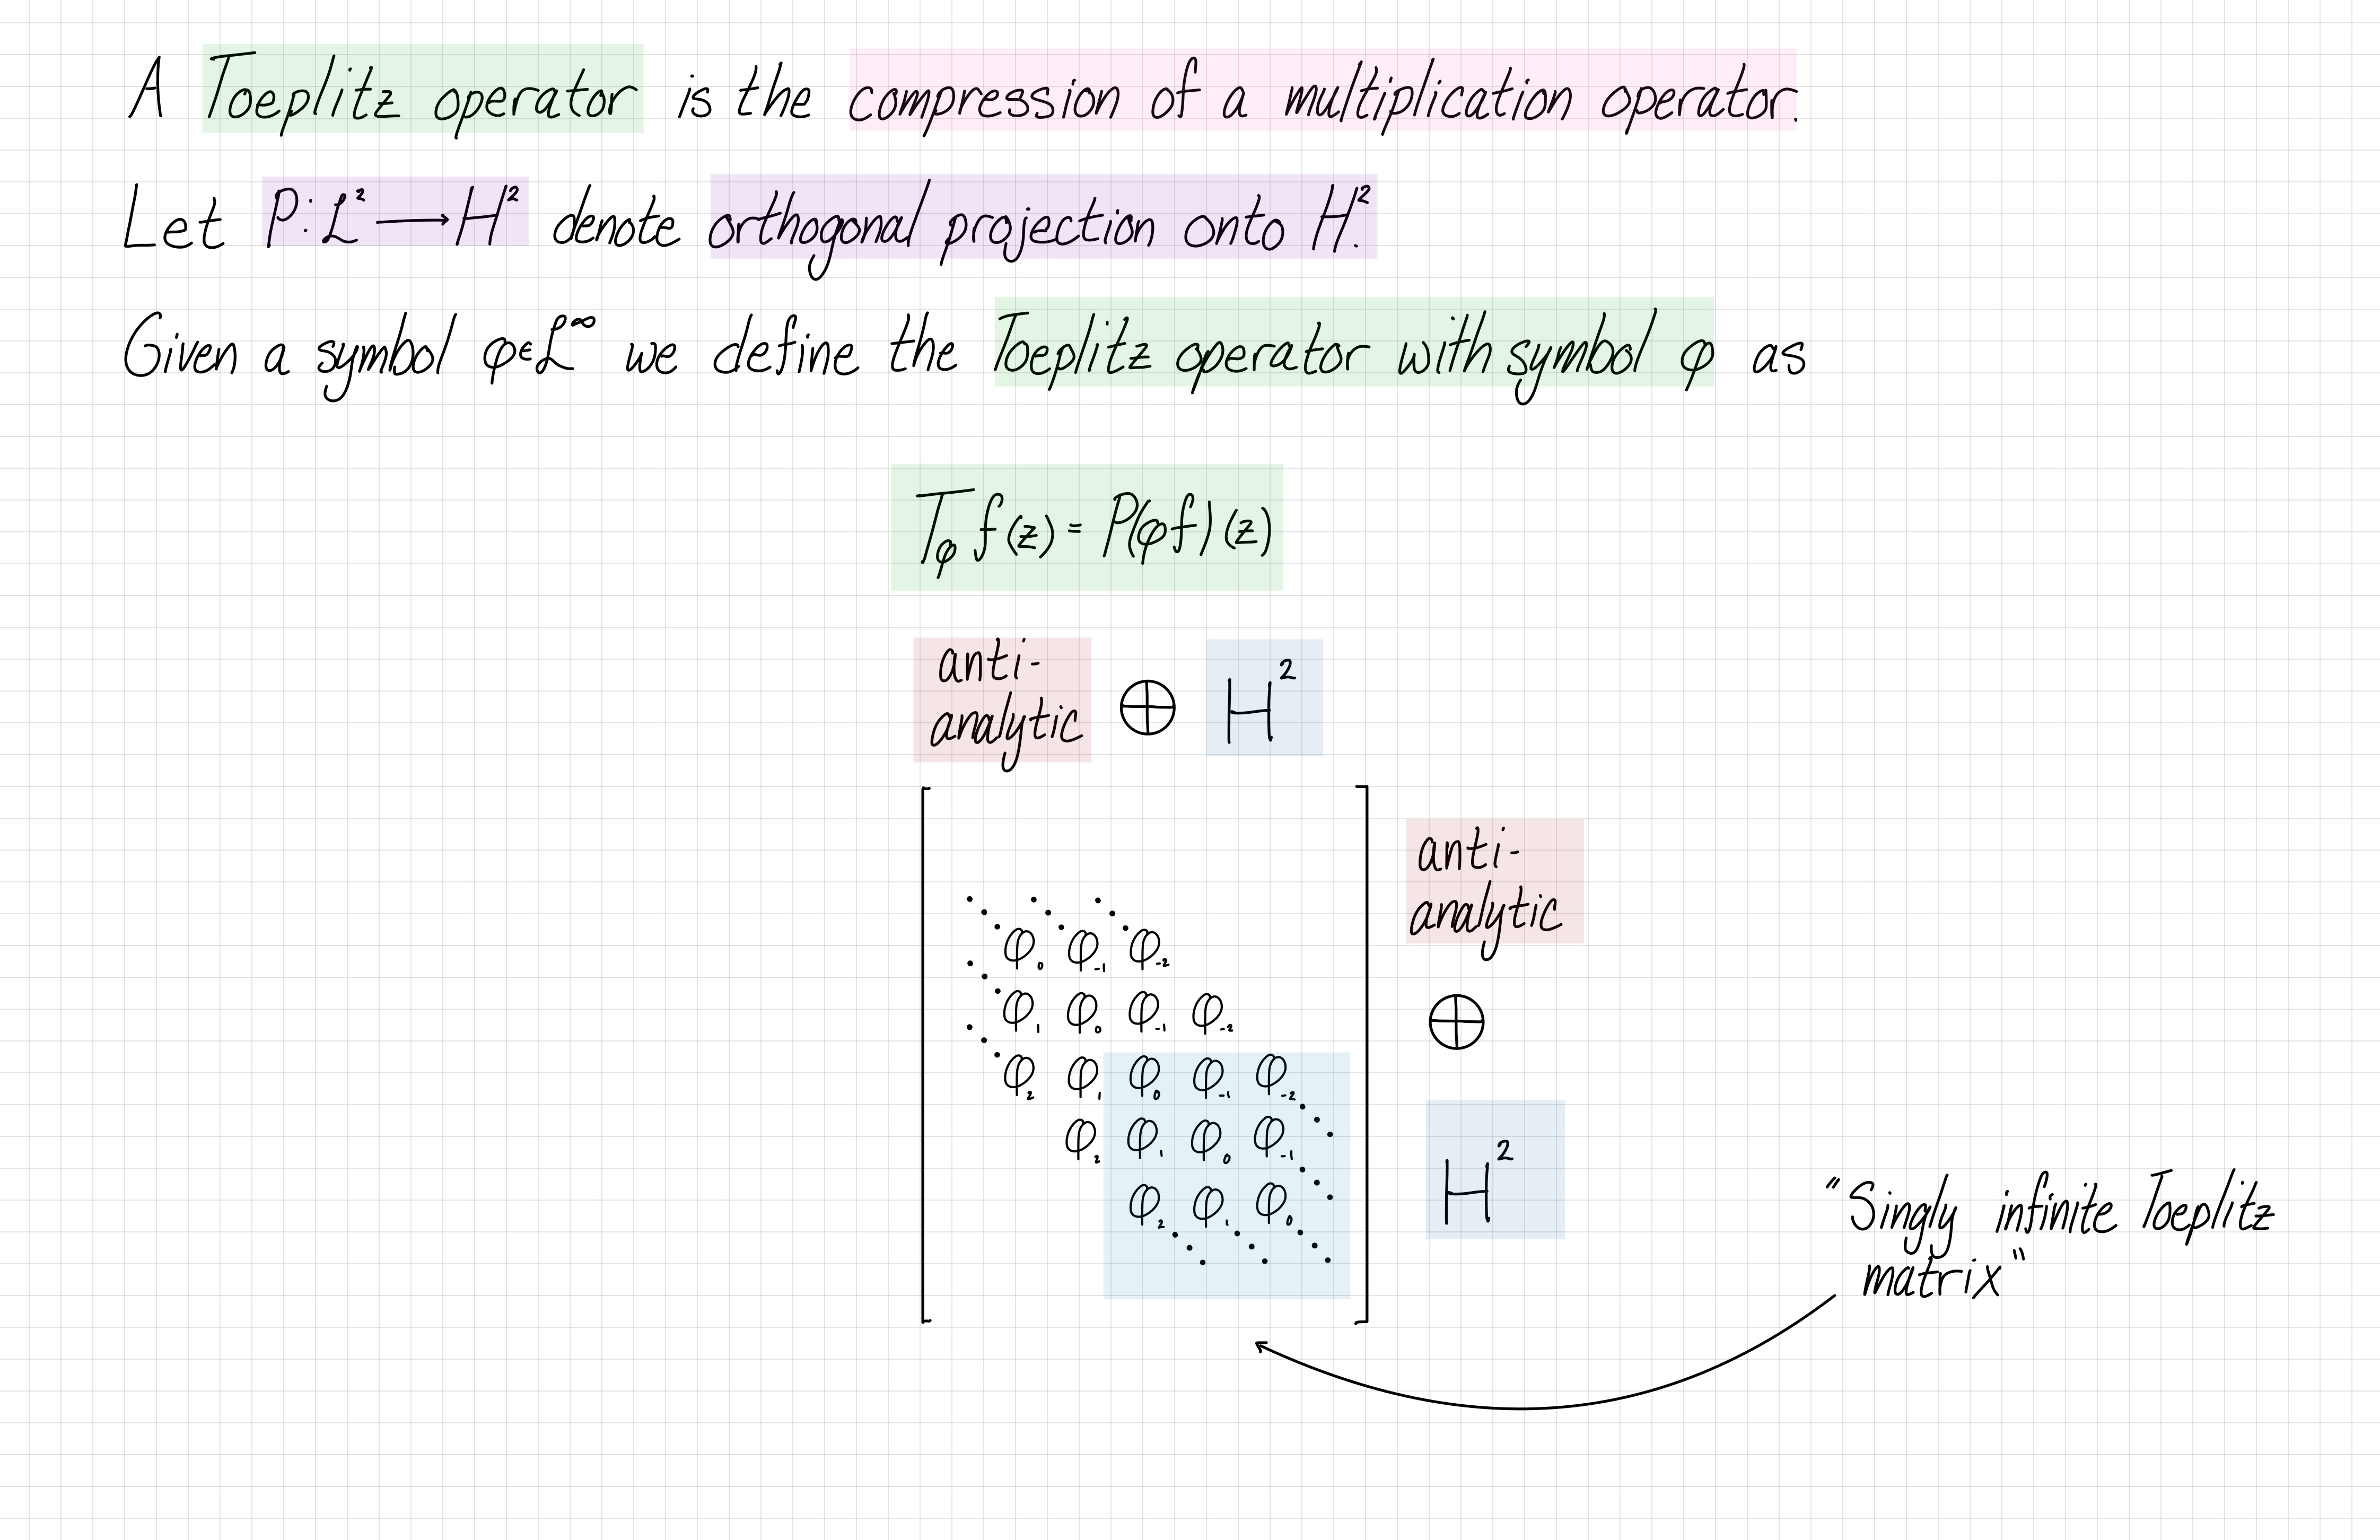 A Toeplitz operator is the compression of a multiplication operator.
Let P: L² → H² denote orthogonal projection onto H².
Given a symbol φ ∈ L^∞ we define the Toeplitz operator with symbol φ as
T_φ f(z) = P(φf)(z)
anti-
analytic ⊕ H²
anti-
analytic
⊕
H²
φ₀ φ₋₁ φ₋₂
φ₁ φ₀ φ₋₁ φ₋₂
φ₂ φ₁ φ₀ φ₋₁ φ₋₂
φ₂ φ₁ φ₀ φ₋₁
φ₂ φ₁ φ₀
"Singly infinite Toeplitz
matrix"